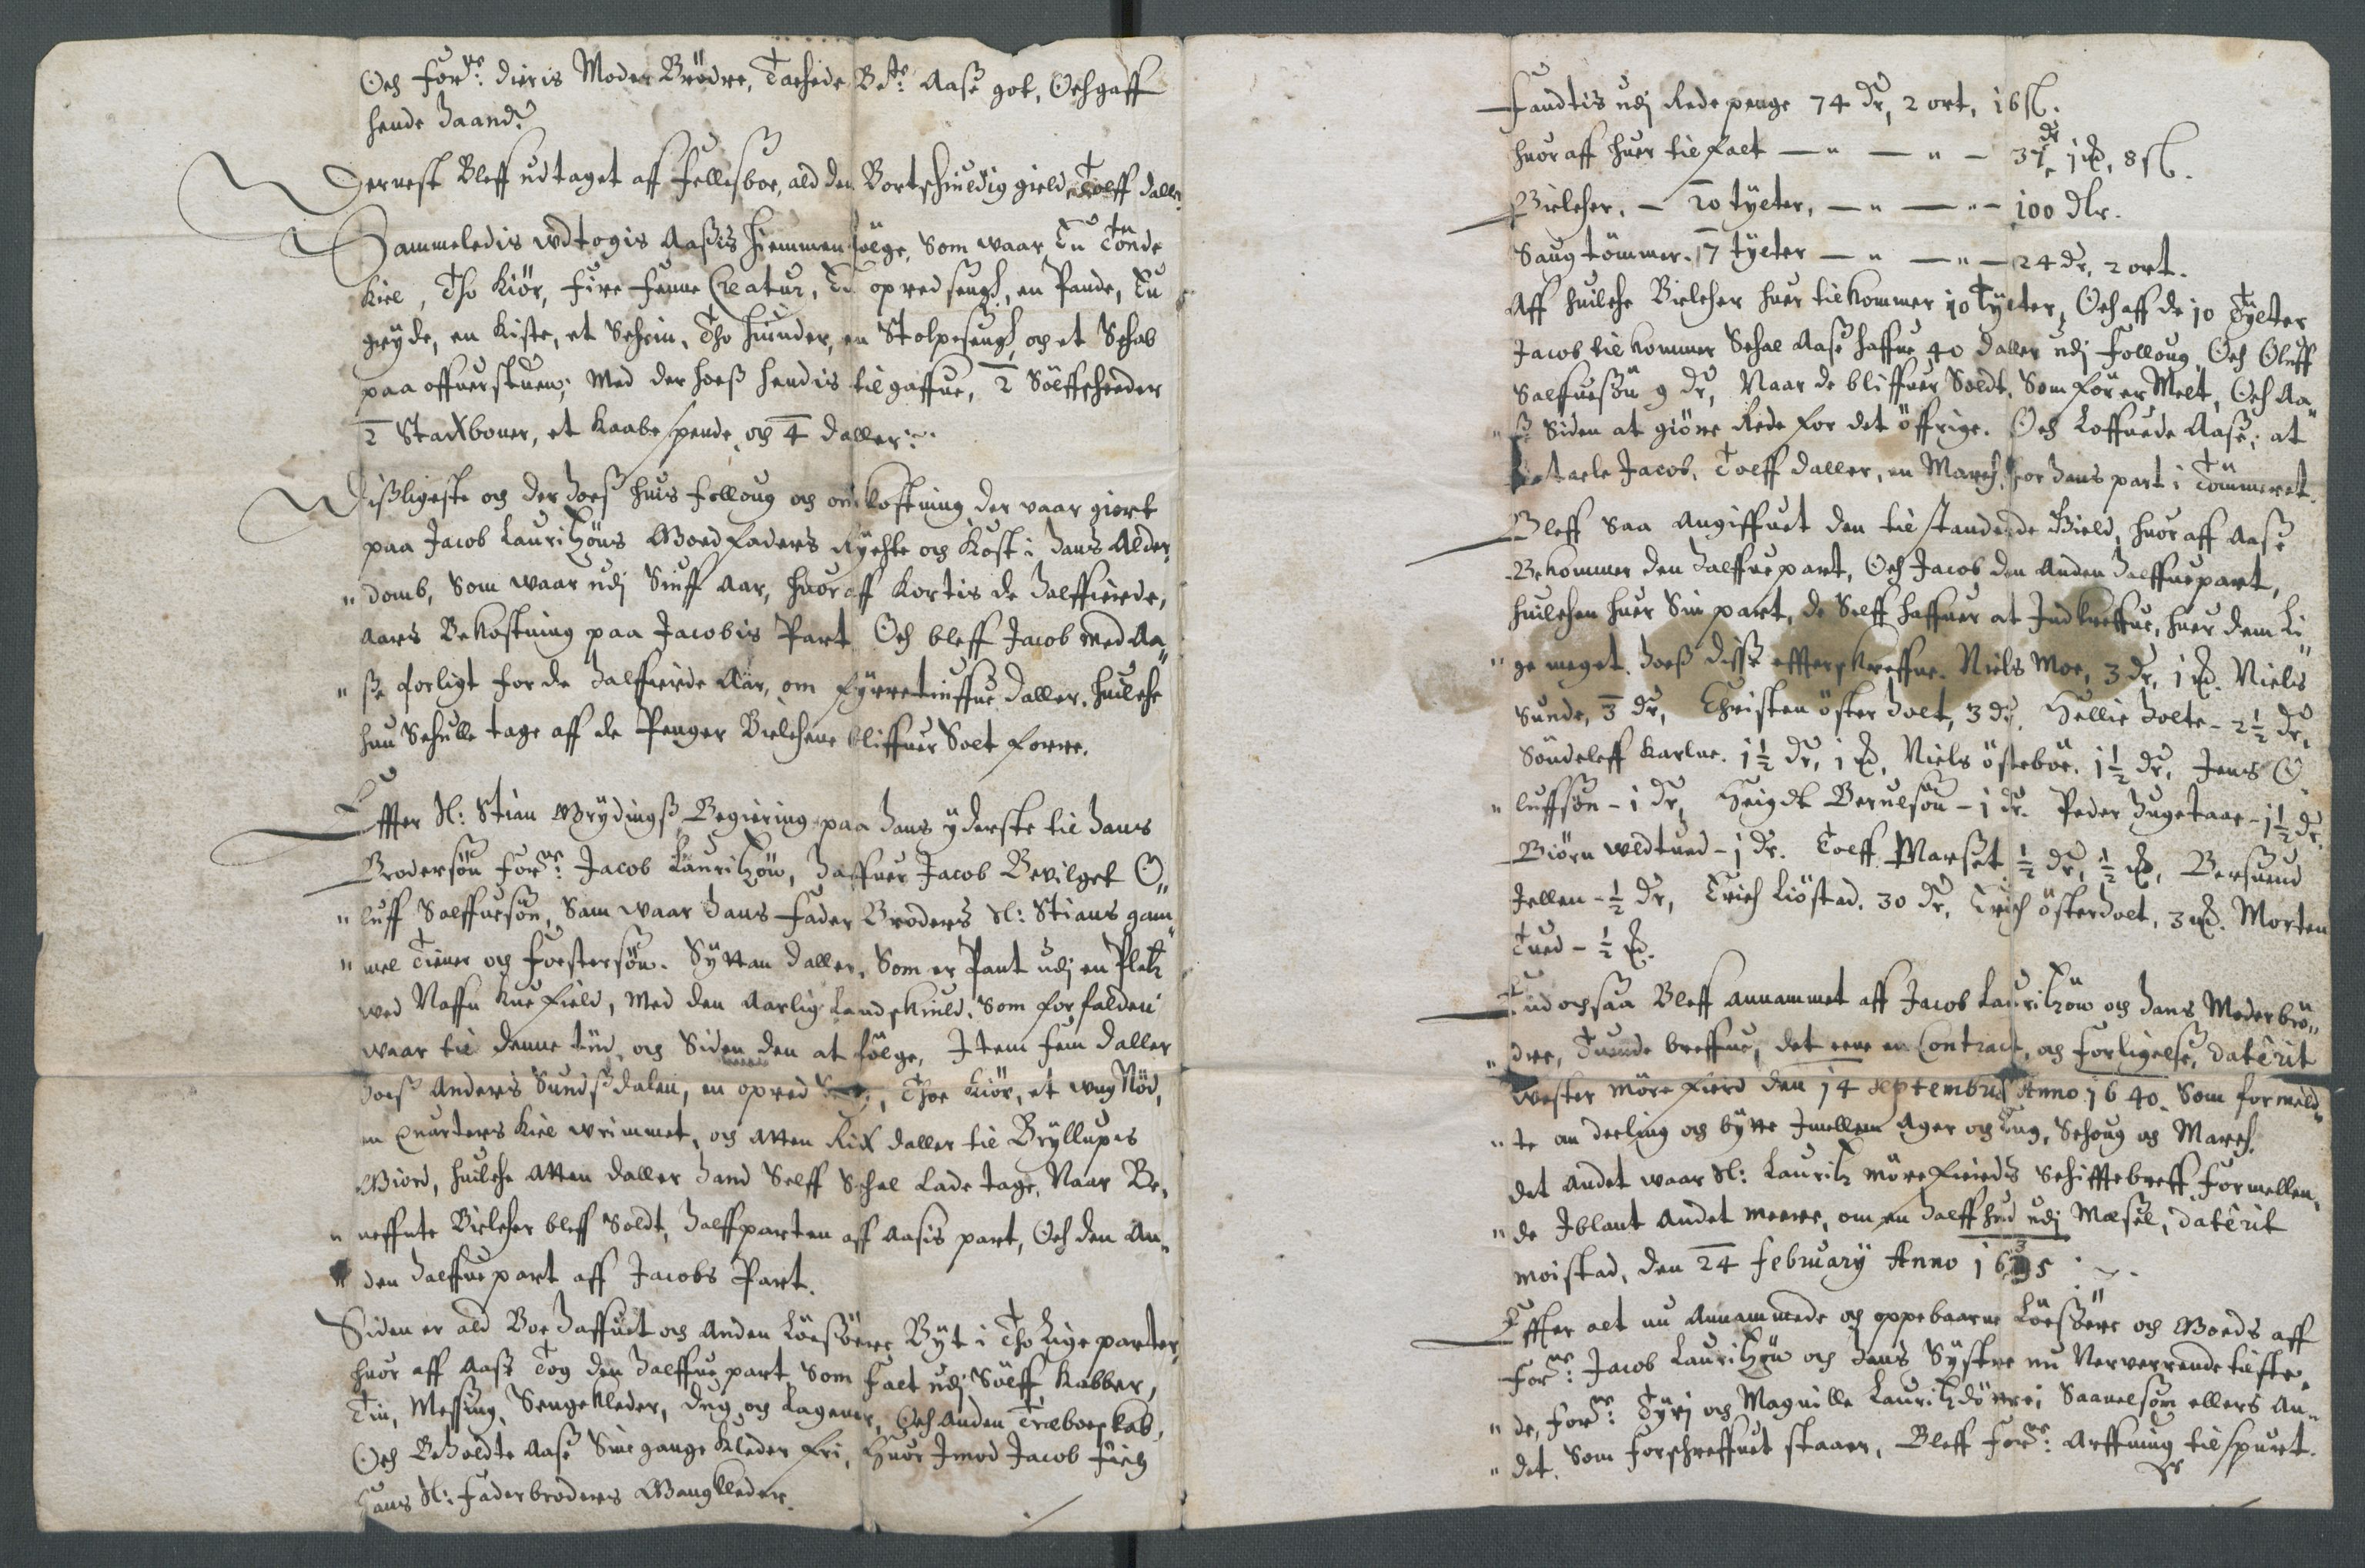 Och forne: dieris Moder Brödre, Tachede Bte: Aase got, Och gaff
hende haand.
Dernest Bleff udtaget aff fellisboe, ald den Bortschuldig gield, Tolff daller
Sammeledis udtogis Aasis hiemmenfölge, Som waar, Tu Tönde
kiel, Tho kiör, fire femme Creatur, Tu opred seng, en Pande, Tu
gryde, en kiste, et Schrin, Tho hiunder, en Stolpeseng, och et Schab
paa offuerstuen; Med der hoeß hendis tilgaffue, 2 Sölffscheeder
2 Stackboner, et kaabe spende, och 4 daller
Dißligeste och der hoeß huis felloug och omkostning der vaar giort
paa Jacob Lauritzöns Goedfaders Rychte och kost i hans Alder
"domb, Som waar udj Siuff Aar, huor aff kortis de halffierde,
Aars Bekostning paa Jacobis Part Och bleff Jacob med Aa"
"se forligt for de halffierde Aar, om fyrretiuffue daller, huilche
hun Schulle tage aff de Penger Bielchene bliffuer Solt forre.
Effter Sl: Stian Grydings Begiering paa hans yderste til hans
Brodersön forne: Jacob Lauritzön, haffuer Jacob Bevilget O"
"luff Salffuesön, Sam waar hans fader Broders Sl: Stians gam"
"mel Tiener och fostersön. Sytten daller, Som er Pant udj en Pletz
wed Naffn kuefield, Med den Aarlig Landskuld, Som forfalden
waar til denne tiid, och Siden den at fölge, Item fem daller
hoeß Anders Sundßdalen, en opred, Thoe kiör, et ung Nöd,
en quarters kiel urimmet, och Atten Rix daller til Bryllupes
Giord, huilche Atten daller hand Selff Schal lade tage, Naar Be"
"neffnte Bielcher bleff Soldt, halffparten aff Aasis part, Och den An"
"den halffuepart aff Jacobs Part.
Siden er ald Boe haffuet och Anden Löesöere Byt i Tho lige parter,
huor aff Aase Tog den halffuepart Som falt udj Sölff, kabber,
Tin, Messing, Sengekleder, dug och Lagener, Och Anden Træboeskab,
Och Beholdte Aase Sine gange kleder fri, huor Imod Jacob fich
hans Sl: faderbroders Gangkleder.
Fandtis udj Rede penge 74 dr, 2 ort, 16 sl.
huor aff huer tilfalt — " — " — 37 dr, 1 ℳ, 8 sl.
Bielcher. — 20 tylter, — " — " — 100 dlr.
Saugtömmer. 17 tylter — " — " — 24 dr, 2 ort.
Aff huilche Bielcher huer tilkommer 10 Tylter, Och aff de 10 Tylter
Jacob tilkommer Schal Aase haffue 40 daller udj Felloug, Och Oluff
Salffuesön 9 dr, Naar de bliffuer Soldt, Som för er Melt, Och Aa"
"se Siden at giöre Rede for det öffrige. Och Loffuede Aase, at
betaele Jacob, Tolff daller, en March, for hans part i Tömmeret.
Bleff Saa Angiffuet den tilstandende Gield, huor aff Aase
Bekommer den halffuepart, Och Jacob den Anden halffuepart,
huilchen huer Sin part, de Selff haffuer at Indkreffue, huer dem Li"
"ge meget. hoeß disse effterskreffne. Niels Moe, 3 dr, 1 ℳ. Niels
Sunde, 3 dr, Christen österholt, 3 dr. Hellie holte - 2½ dr,
Söndeleff karlne. 1½ dr, 1 ℳ, Niels östeböe. 1½ dr, Jens O
"luffsön - 1 dr, Heigdt Berulsön - 1 dr. Peder hugetaae - 1½ dr,
Biörn uldtued - 1 dr. Tolff Marset ½ dr, ½ ℳ, Bersuend
Jellen - ½ dr, Erich Liöstad. 30 dr, Erich österholt, 3 ℳ. Morten
Tued - ½ ℳ.
End och saa Bleff annammet aff Jacob Lauritzön och hans Moderbrö"
"dre, Tuende breffue, det eene en Contract, och forligelse, daterit
wester mörefierd den 14 septembris Anno 1640. Som formeld"
"te om deeling och bytte Imellem Ager och Eng, Schoug och March.
det Andet waar Sl: Lauritz mörefierds Schifftebreff, formellen"
"de Iblant Andet meere, om en halff hud udj Mæsel, daterit
moistad, den 24 february Anno 1635
Effter alt nu Annammede och oppebaarne Löesöere och Goeds aff
forne: Jacob Lauritzön och hans Systre nu Nerverrende tilste"
"de, forne: Tyri och Magnille Lauritzdöttre; Saauelsom ellers An"
"det, Som forschreffuet staar, Bleff forne: Arffning tilspurt.